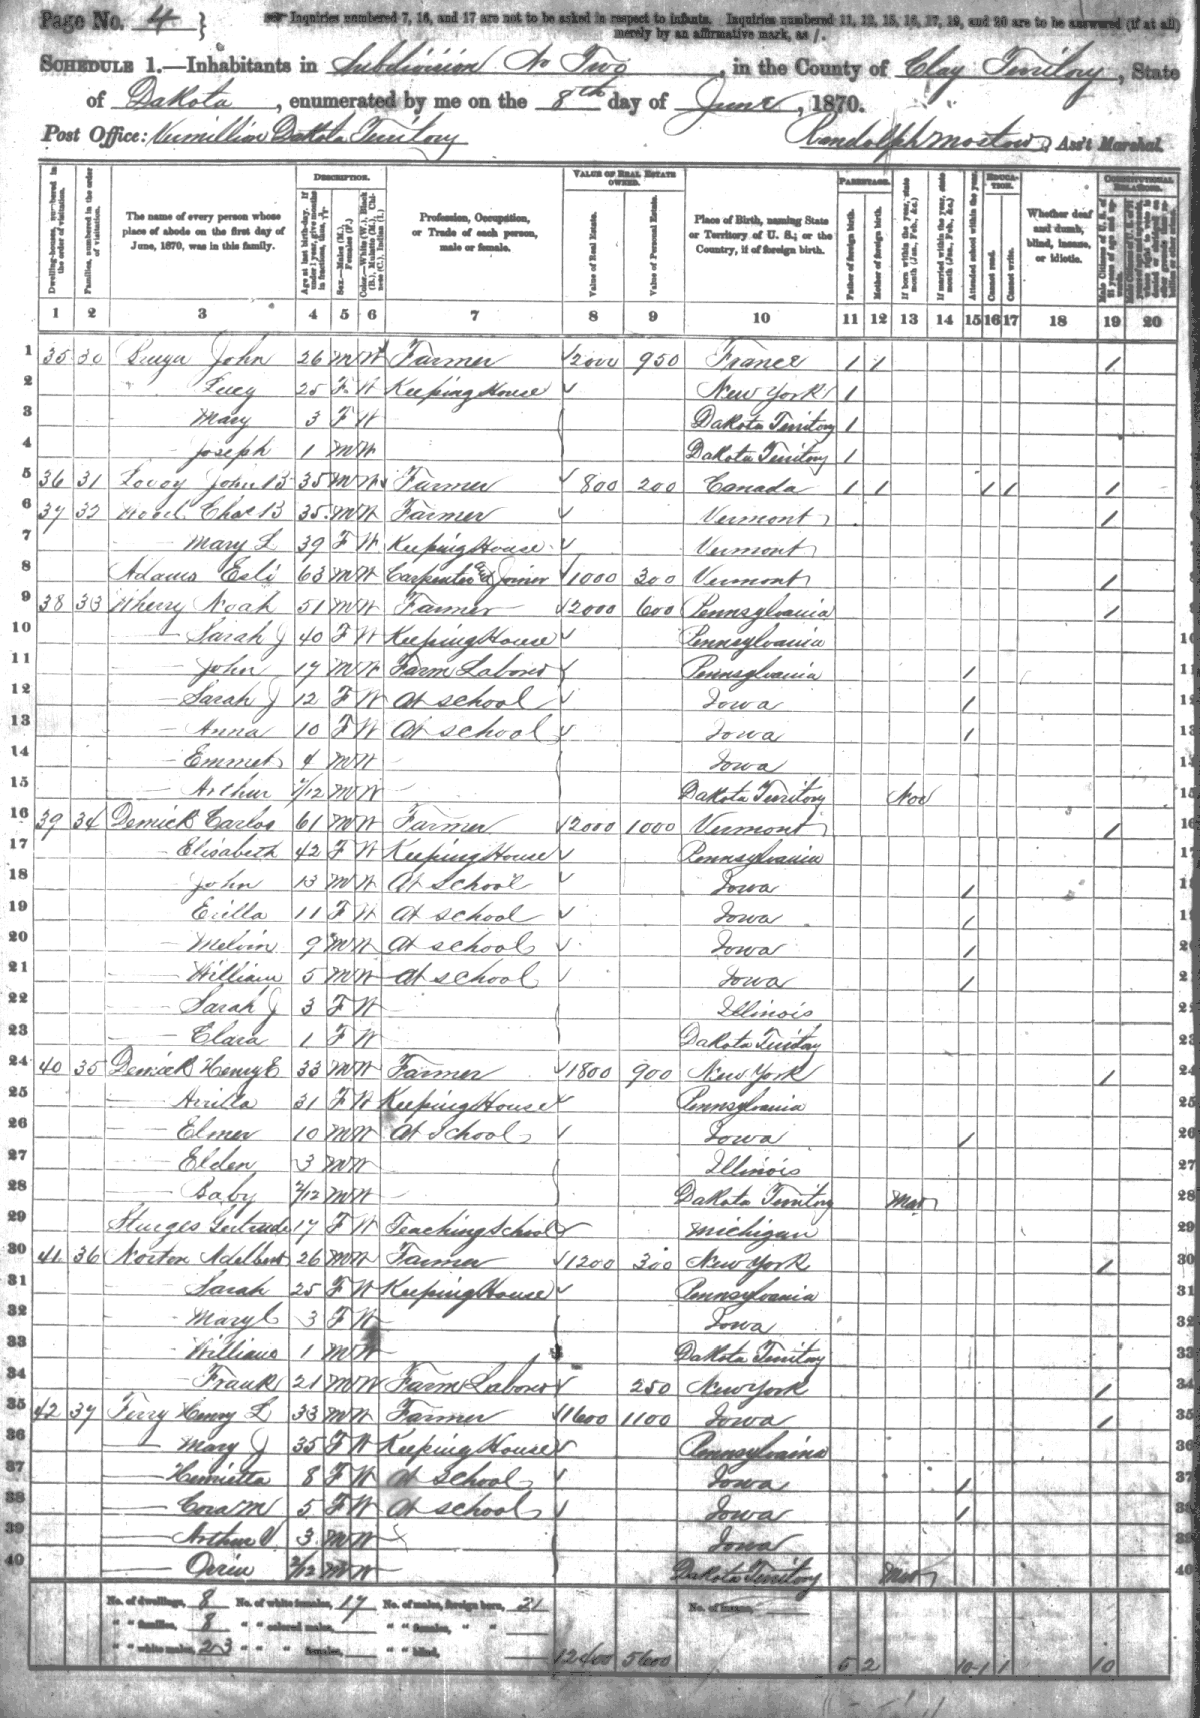 Page No. 4 } Inquiries numbered 7, 16, and 17 are not to be asked in respect to infants. Inquiries numbered 11, 12, 15, 16, 17, 19, and 20 are to be answered (if at all)
merely by an affirmative mark, as /.
SCHEDULE 1.—Inhabitants in Subdivision No Two, in the County of Clay Territory, State
of Dakota, enumerated by me on the 8th day of June, 1870.
Post Office: Vermillion Dakota Territory Randolph, Ass't Marshal.
Dwelling-houses, numbered in the order of visitation.
Families, numbered in the order of visitation.
The name of every person whose place of abode on the first day of June, 1870, was in this family.
DESCRIPTION.
Age at last birth-day. If under 1 year, give months in fractions, thus, 3/12
Sex.—Males (M.), Females (F.)
Color.—White (W.), Black (B.), Mulatto (M.), Chinese (C.), Indian (I.)
Profession, Occupation, or Trade of each person, male or female.
VALUE OF REAL ESTATE OWNED.
Value of Real Estate.
Value of Personal Estate.
Place of Birth, naming State or Territory of U. S.; or the Country, if of foreign birth.
PARENTAGE.
Father of foreign birth.
Mother of foreign birth.
If born within the year, state month (Jan., Feb., &c.)
If married within the year, state month (Jan., Feb., &c.)
Attended school within the year.
EDUCATION.
Cannot read.
Cannot write.
Whether deaf and dumb, blind, insane, or idiotic.
CONSTITUTIONAL RELATIONS.
Male Citizens of U. S. of 21 years of age and upwards.
1 2 3 4 5 6 7 8 9 10 11 12 13 14 15 16 17 18 19 20
1 35 30 John 26 M W Farmer 2000 950 France / / /
2 Lucy 25 F W Keeping House New York /
3 Mary 3 F W Dakota Territory /
4 Joseph 1 M W Dakota Territory /
5 36 31 John B 35 M W Farmer 800 200 Canada / / / / /
6 37 32 Wood Chas B 35 M W Farmer Vermont /
7 Mary L 39 F W Keeping House Vermont
8 Adams Esli 63 M W Carpenter & Joiner 1000 300 Vermont /
9 38 33 Wherry Noah 51 M W Farmer 2000 600 Pennsylvania /
10 Sarah J 40 F W Keeping House Pennsylvania
11 John 17 M W Farm Laborer Pennsylvania /
12 Sarah J 12 F W At school Iowa /
13 Anna 10 F W At school Iowa /
14 Emmet 4 M W Iowa
15 Arthur /12 M W Dakota Territory Nov
16 39 34 Demick Carlos 61 M W Farmer 2000 1000 Vermont /
17 Elisabeth 42 F W Keeping House Pennsylvania
18 John 13 M W At School Iowa /
19 Erilla 11 F W At school Iowa /
20 Melvin 9 M W At school Iowa /
21 William 5 M W At school Iowa /
22 Sarah J 3 F W Illinois
23 Clara 1 F W Dakota Territory
24 40 35 Demick Henry E 33 M W Farmer 1800 900 New York /
25 Arrilla 31 F W Keeping House Pennsylvania
26 Elmer 10 M W At School Iowa /
27 Elden 3 M W Illinois
28 Baby 2/12 M W Dakota Territory Mar
29 Sturges Gertrude 17 F W Teaching School Michigan
30 41 36 Norton Adelbert 26 M W Farmer 1200 300 New York /
31 Sarah 25 F W Keeping House Pennsylvania
32 Mary C 3 F W Iowa
33 William 1 M W Dakota Territory
34 Frank 21 M W Farm Laborer 250 New York /
35 42 37 Ferry Henry L 33 M W Farmer 1600 1100 Iowa /
36 Mary J 35 F W Keeping House Pennsylvania
37 Henrietta 8 F W At School Iowa /
38 Cora M 5 F W At school Iowa /
39 Arthur V 3 M W Iowa
40 Orrin 2/12 M W Dakota Territory Mar
No. of dwellings, 8 No. of white females, 17 No. of males, foreign born, 21 No. of insane,
" " families, 8 " " colored males, " " females, " "
" " white males, 23 " " " females, " " blind, 12400 5600 5 2 10 1 1 10